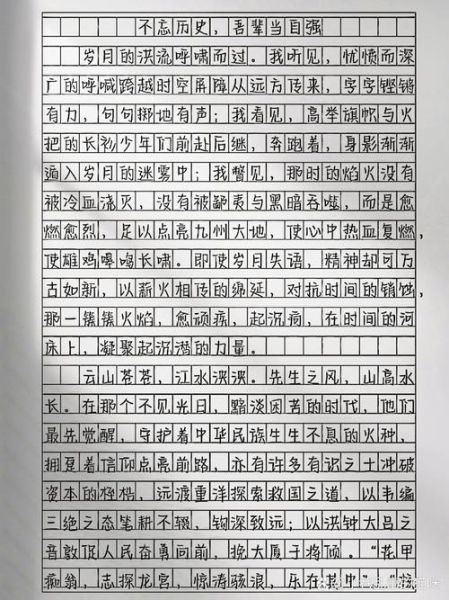 不忘历史，吾辈当自强
岁月的洪流呼啸而过。我听见，忧愤而深
广的呼喊跨越时空屏障从远方传来，字字铿锵
有力，句句掷地有声；我看见，高举旗帜与火
把的长衫少年们前赴后继，奔跑着，身影渐渐
遁入岁月的迷雾中；我瞥见，那时的焰火没有
被冷血浇灭，没有被鄙夷与黑暗吞噬，而是愈
燃愈烈，足以点亮九州大地，使心中热血复燃，
使雄鸡嗥鸣长啸。即使岁月失语，精神却可万
古如新，以薪火相传的绵延，对抗时间的销蚀，
那一簇簇火焰，愈顽疾，起沉疴，在时间的河
床上，凝聚起沉潜的力量。
云山苍苍，江水泱泱。先生之风，山高水
长。在那个不见光日，黯淡困苦的时代，他们
最先觉醒，守护着中华民族生生不息的火种，
拥趸着信仰点亮前路，亦有许多有识之士冲破
资本的桎梏，远渡重洋探索救国之道，以韦编
三绝之态笔耕不辍，钩深致远；以洪钟大吕之
音敦促人民奋勇向前，挽大厦于将倾。“花甲
痴翁，志探龙宫，惊涛骇浪，乐在其中”，“